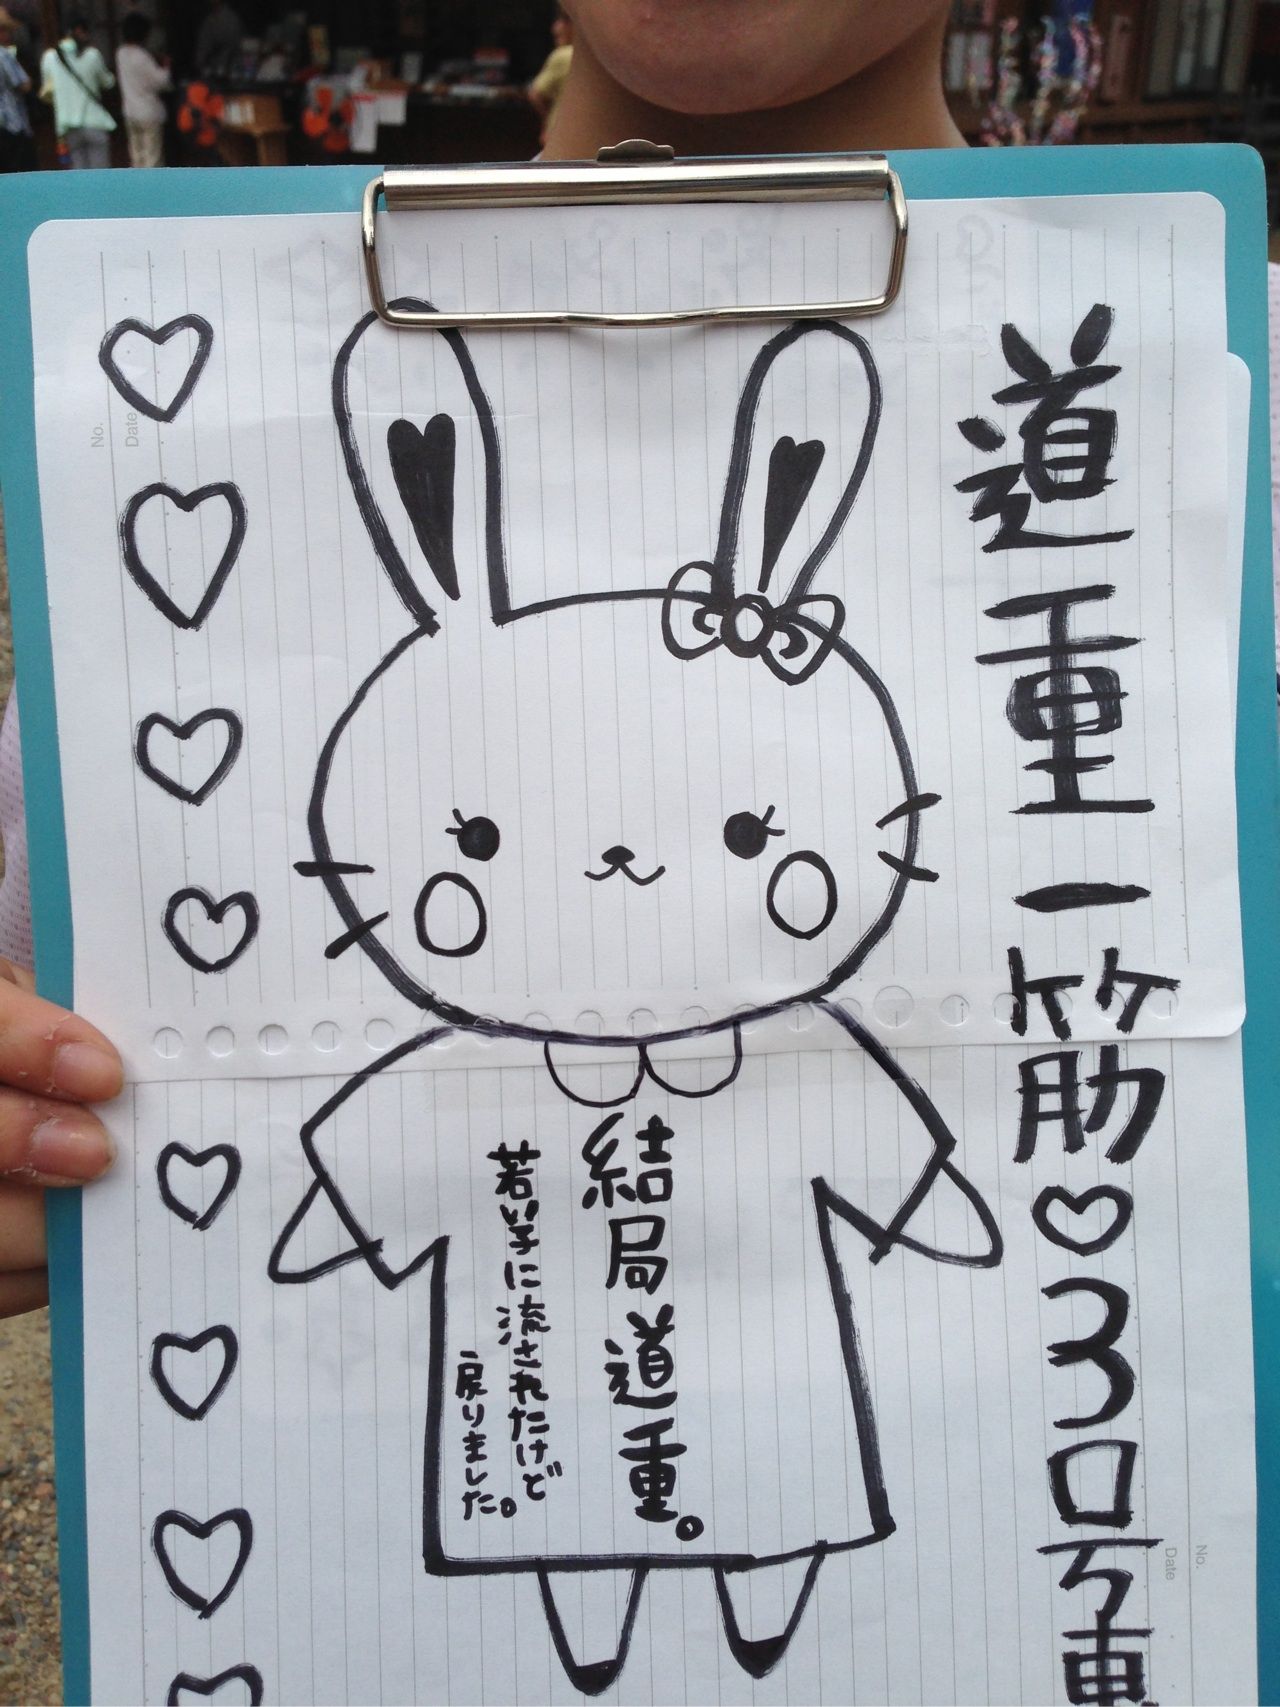 道重一筋♡3号車
結局道重。
若い子に流されたけど
戻りました。
No.
Date
No.
Date